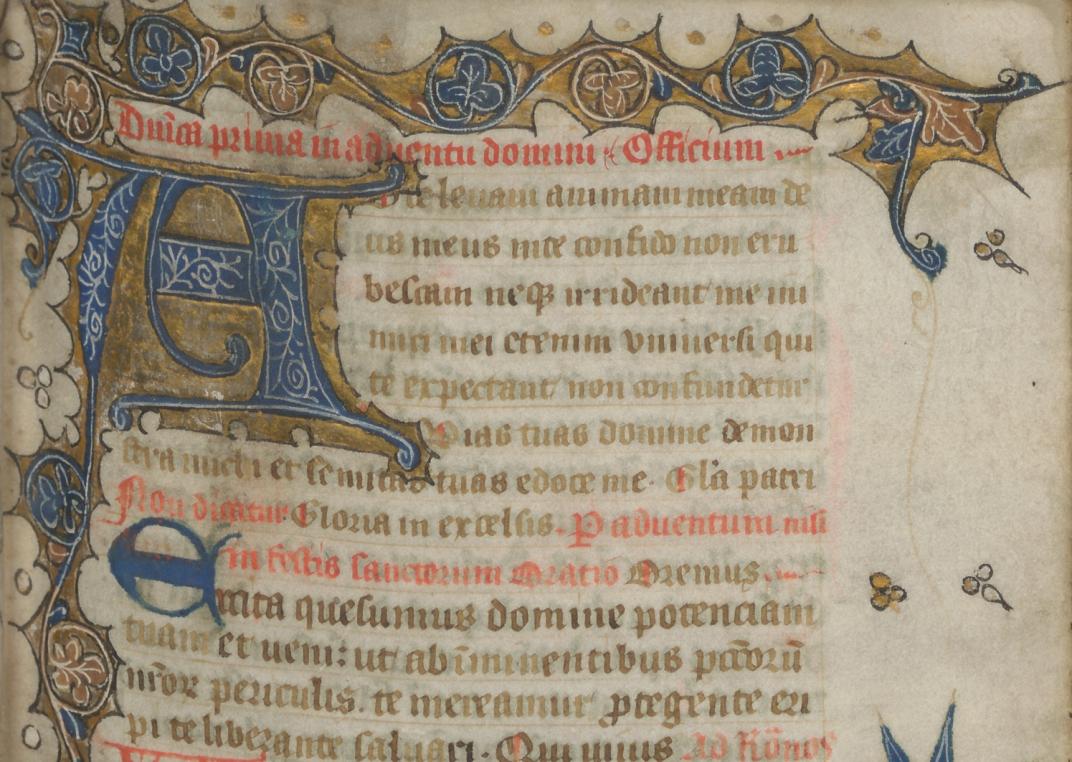 Dnica prima in aduentu domini Officium
Ad te leuaui animam meam de
us meus in te confido non eru
bescam neqꝫ irrideant me ini
mici mei etenim vniuersi qui
te expectant non confundetur
Uias tuas domine demon
stra michi et semitas tuas edoce me. Gla patri
Non dicitur Gloria in excelsis. P aduentum nisi
in festis sanctorum Oratio Oremus.
Excita quesumus domine potenciam
tuam et ueni: ut ab īminentibus pccōrū
nror periculis. te mereamur ꝓtegente eri
pi te liberante saluari. Qui uiuis Ad Rōnos